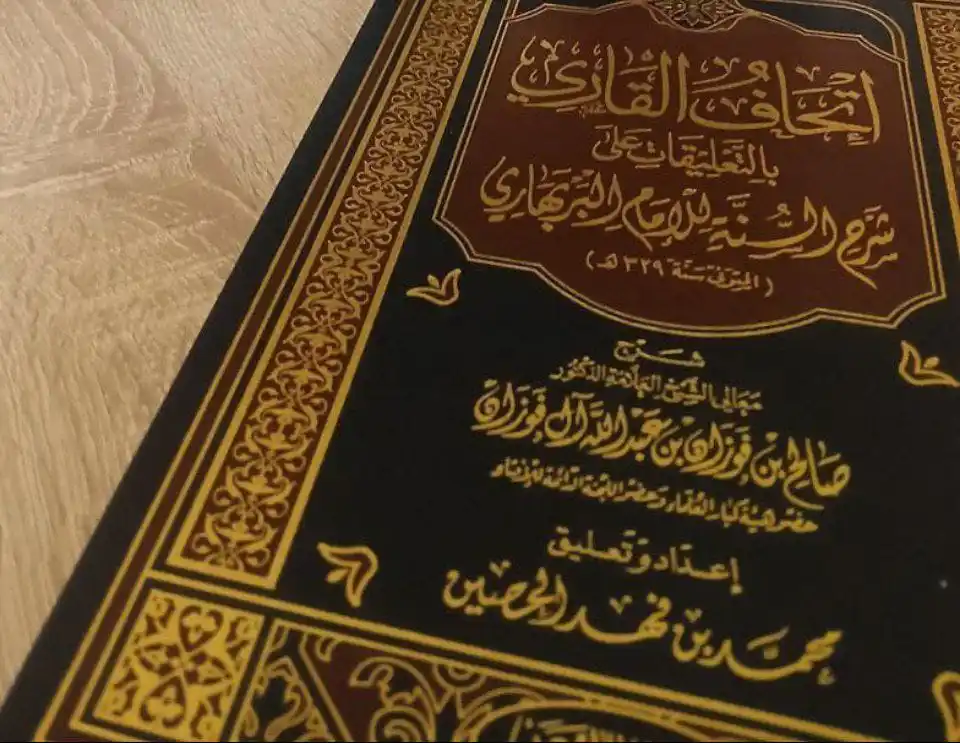 إتحاف القاري
بالتعليقات على
شرح السنة للإمام البربهاري
(المتوفى سنة ٣٢٩ هـ)
شرح
معالي الشيخ العلامة الدكتور
صالح بن فوزان بن عبد الله آل فوزان
عضو هيئة كبار العلماء وعضو اللجنة الدائمة للإفتاء
إعداد وتعليق
محمد بن فهد الحصين